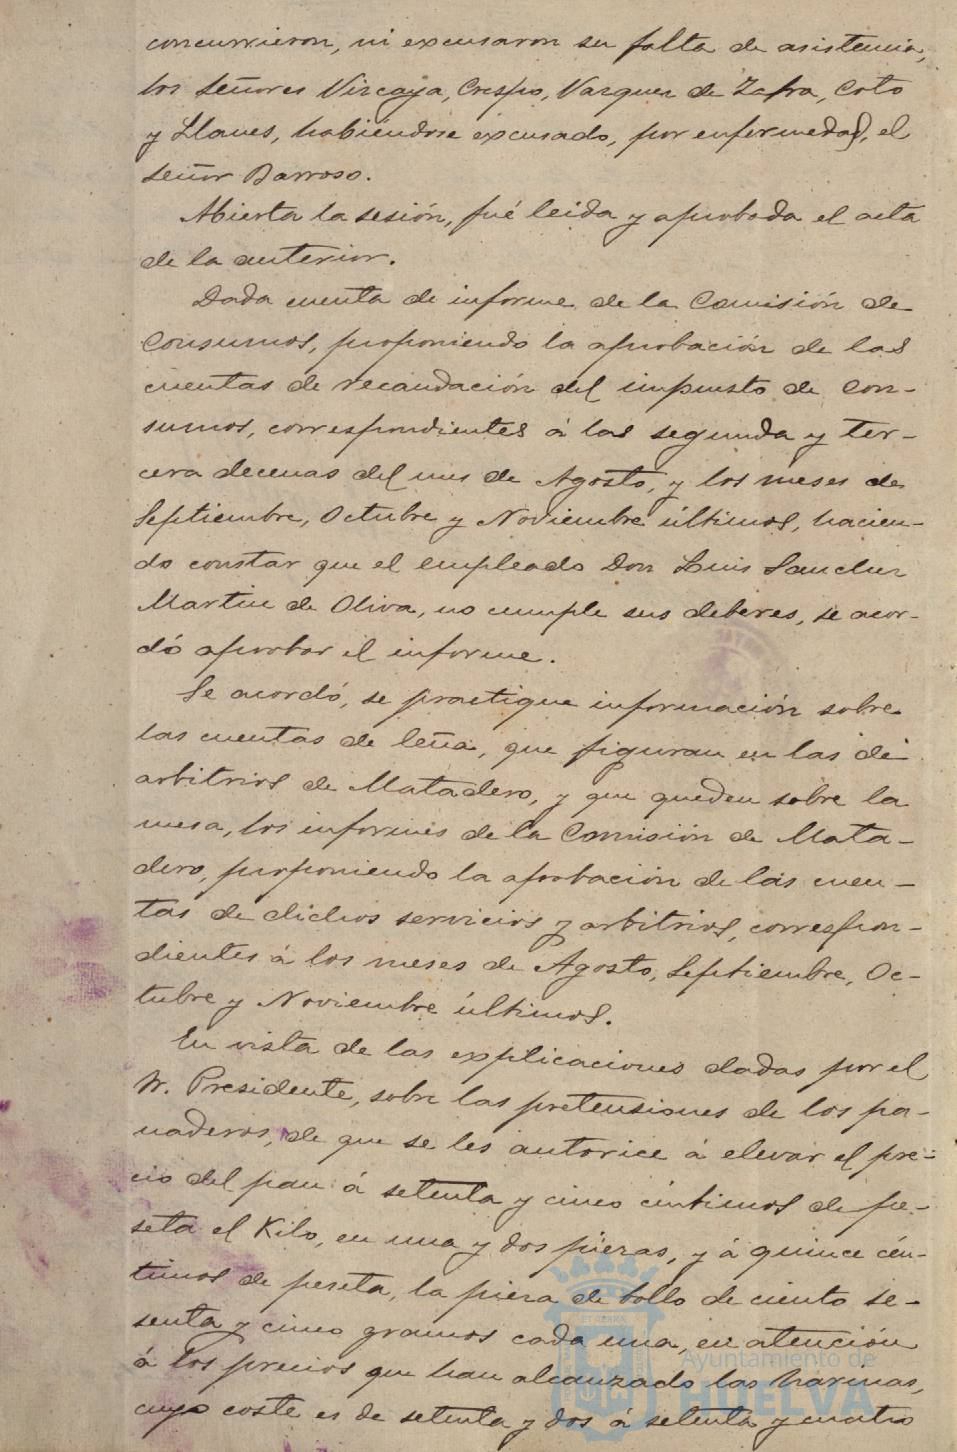 concurrieron, ni excusaron su falta de asistencia,
los Señores Vizcaya, Crespo, Vazquez de Zafra, Coto
y Llanes, habiéndose excusado, por enfermedad, el
Señor Barroso.
Abierta la sesión, fué leida y aprobada el acta
de la anterior.
Dada cuenta de informe de la Comisión de
Consumos, proponiendo la aprobación de las
cuentas de recaudación del impuesto de Con-
sumos, correspondientes á las segunda y ter-
cera decenas del mes de Agosto, y los meses de
Septiembre, Octubre y Noviembre últimos, hacien-
do constar que el empleado Don Luis Sanchez
Martin de Oliva, no cumple sus deberes, se acor-
dó aprobar el informe.
Se acordó, se practique información sobre
las cuentas de leña, que figuran en las de
arbitrios de Matadero, y que queden sobre la
mesa, los informes de la Comisión de Mata-
dero, proponiendo la aprobación de las cuen-
tas de dichos servicios y arbitrios, correspon-
dientes á los meses de Agosto, Septiembre, Oc-
tubre y Noviembre últimos.
En vista de las explicaciones dadas por el
Sr. Presidente, sobre las pretensiones de los pa-
naderos, de que se les autorice á elevar el pre-
cio del pan á setenta y cinco céntimos de pe-
seta el Kilo, en una y dos piezas, y á quince cén-
timos de peseta, la pieza de bollo de ciento se-
senta y cinco gramos cada una, en atención
á los precios que han alcanzado las harinas,
cuyo coste es de setenta y dos á setenta y cuatro
Ayuntamiento de
HUELVA